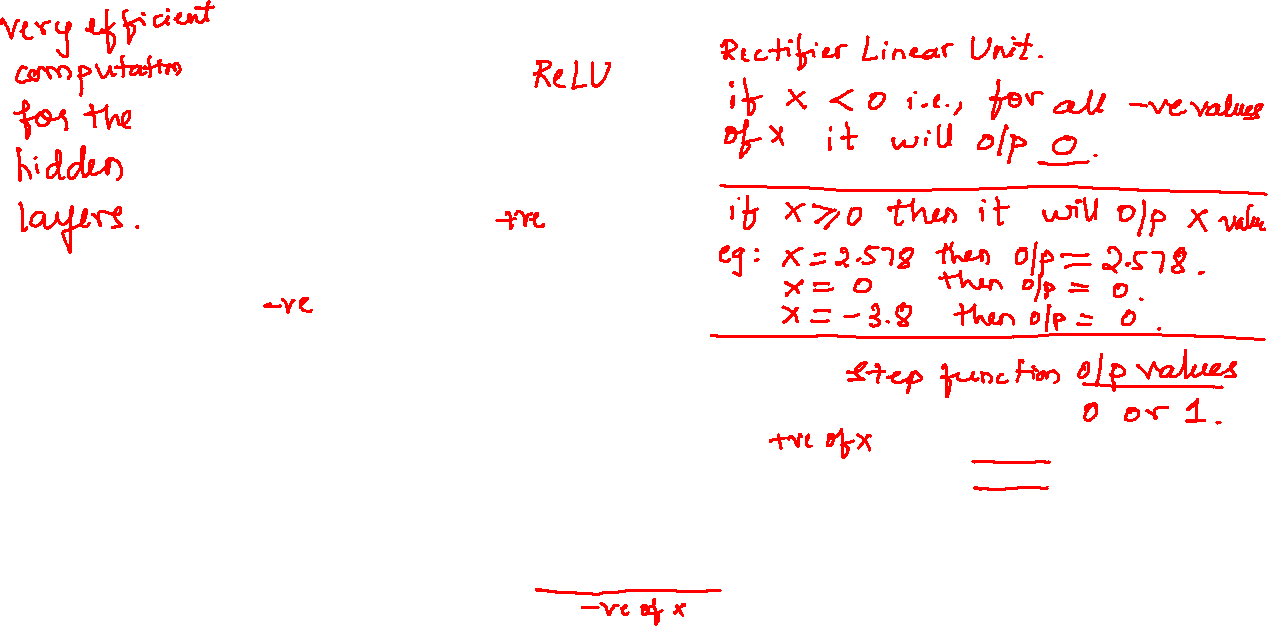 very efficient
computation
for the
hidden
layers.
ReLU
+ve
-ve
Rectifier Linear Unit.
if x < 0 i.e., for all -ve values
of x it will o/p 0.
if x ≥ 0 then it will o/p x value
eg: x = 2.578 then o/p = 2.578.
x = 0 then o/p = 0.
x = -3.8 then o/p = 0.
step function o/p values
0 or 1.
+ve of x
-ve of x